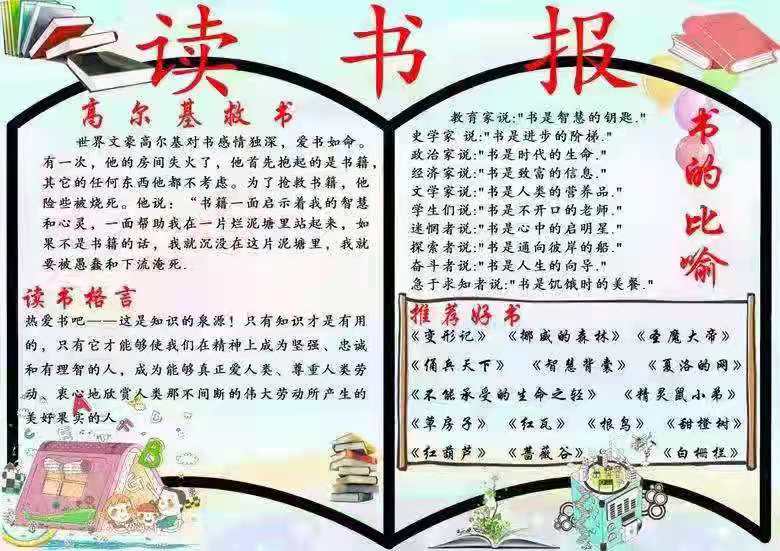 读书报
高尔基救书
世界文豪高尔基对书感情独深，爱书如命。
有一次，他的房间失火了，他首先抱起的是书籍，
其它的任何东西他都不考虑。为了抢救书籍，他
险些被烧死。他说：“书籍一面启示着我的智慧
和心灵，一面帮助我在一片烂泥塘里站起来，如
果不是书籍的话，我就沉没在这片泥塘里，我就
要被愚蠢和下流淹死.
读书格言
热爱书吧——这是知识的泉源！只有知识才是有用
的，只有它才能够使我们在精神上成为坚强、忠诚
和有理智的人，成为能够真正爱人类、尊重人类劳
动、衷心地欣赏人类那不间断的伟大劳动所产生的
美好果实的人
书的比喻
教育家说:"书是智慧的钥匙."
史学家 说:"书是进步的阶梯."
政治家说:"书是时代的生命."
经济家说:"书是致富的信息."
文学家说:"书是人类的营养品."
学生们说:"书是不开口的老师."
迷惘者说:"书是心中的启明星."
探索者说:"书是通向彼岸的船."
奋斗者说:"书是人生的向导."
急于求知者说:"书是饥饿时的美餐."
推荐好书
《变形记》《挪威的森林》《圣魔大帝》
《佣兵天下》《智慧背囊》《夏洛的网》
《不能承受的生命之轻》《精灵鼠小弟》
《草房子》《红瓦》《根鸟》《甜橙树》
《红葫芦》《蔷薇谷》《白栅栏》